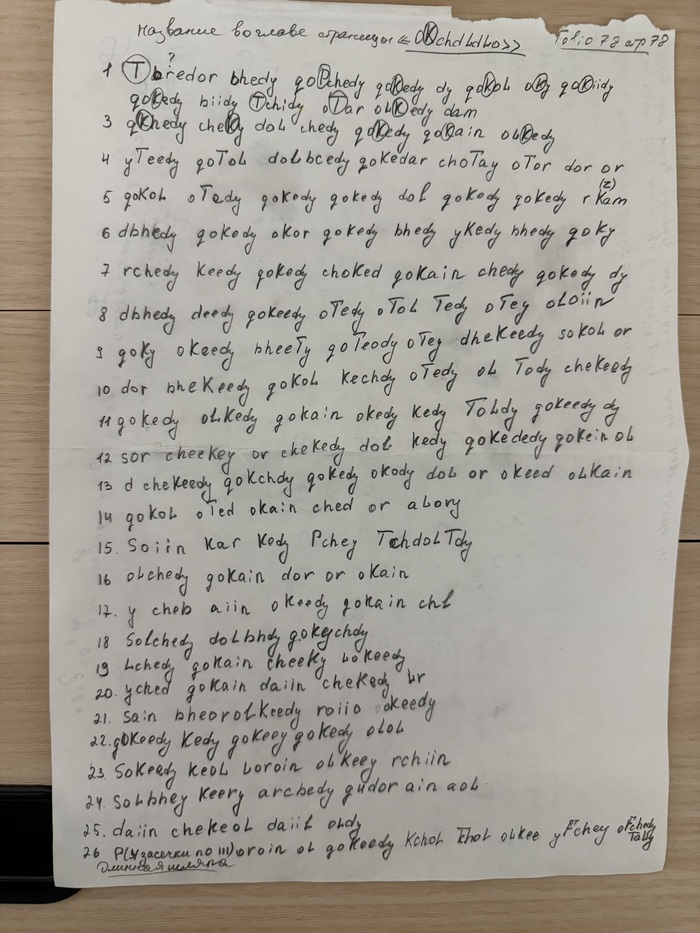 Название во главе страницы «OKchdLdLo» Folio 78 стр 78
?
1 Tbredor bhedy goPchedy goKedy dy goKoL oKy goKiidy
goKedy biidy Tchidy oTar oLKedy dam
3 qKhedy cheKy doL chedy goKedy goKain oLKedy
4 yTeedy goToL doLbcedy goKedar choTay oTor dor or
5 goKoL oTedy goKedy goKedy doL goKedy goKedy r Kam
(z)
6 dbhedy goKedy oKor goKedy bhedy yKedy bhedy goKy
7 rchedy Keedy goKedy choKed goKain chedy goKedy dy
8 dbhedy deedy goKeedy oTedy oToL Tedy oTey oLoiin
9 goKy oKeedy bheeTy goTeody oTey dheKeedy soKoL or
10 dor bheKeedy goKoL Kechdy oTedy oL Tody cheKeedy
11 goKedy oLKedy goKain oKedy Kedy ToLdy goKeedy dy
12 sor cheeKey or cheKedy doL Kedy goKededy goKein oL
13 d cheKeedy goKchdy goKedy oKody doL or oKeed oLKain
14 goKoL oTed oKain ched or aLory
15. Soiin Kar Kedy Pchey TchdoLTdy
16 oLchedy goKain dor or oKain
17. y cheb aiin oKeedy goKain chL
18 SoLchedy doLbhdy goKychdy
19 Lchedy goKain cheeKy LoKeedy
20. yched goKain daiin cheKedy Lr
21. Sain bheoroLKeedy roiio oKeedy
22. goKeedy Kedy goKeey goKedy oLoL
23. SoKeedy KeoL Loroin oLKeey rchiin
24. SoLbhey Keery archedy gudor ain aoL
25. daiin cheKeoL daiiL oLdy
26 P(У засечки по III) oroin oL goKeedy KchoL ThoL oLKee yFchey oFchedy
Taldy
Длинная шляпа